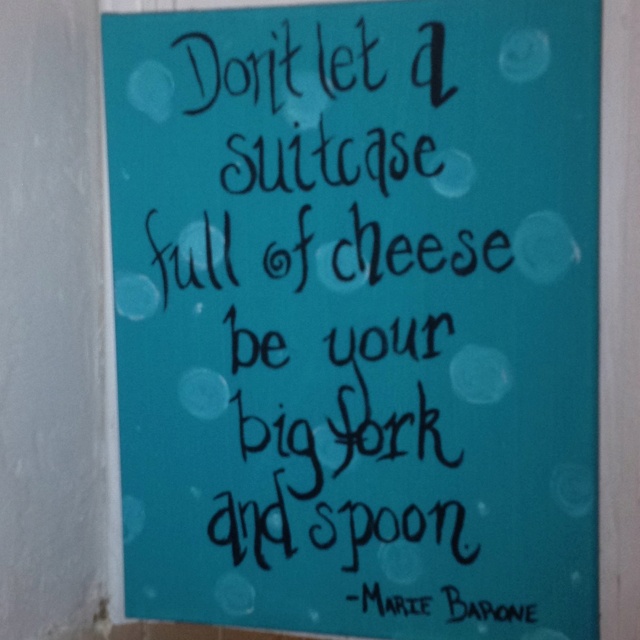 Don't let a
suitcase
full of cheese
be your
big fork
and spoon
-MARIE BARONE